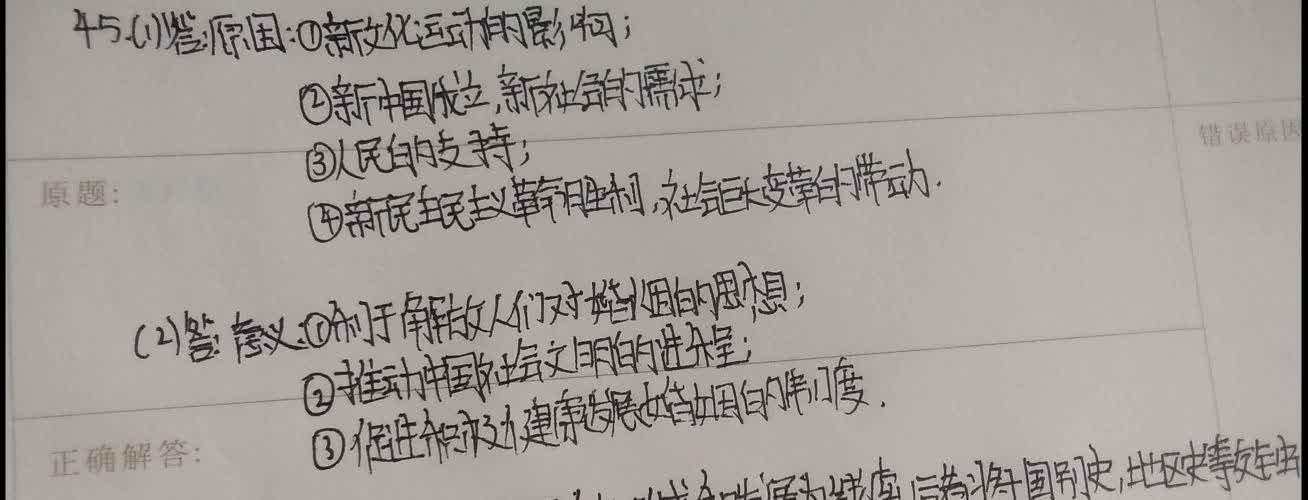 45.(1)答:原因:①新文化运动的影响;
②新中国成立,新社会的需求;
③人民的支持;
错误原因
原题:
④新民主主义革命胜利,社会巨大变革的带动.
(2)答:意义:①利于解放人们对婚姻的思想;
②推动中国社会文明的进程;
③促进积极健康发展婚姻的制度.
正确解答:
国别史,地区史等